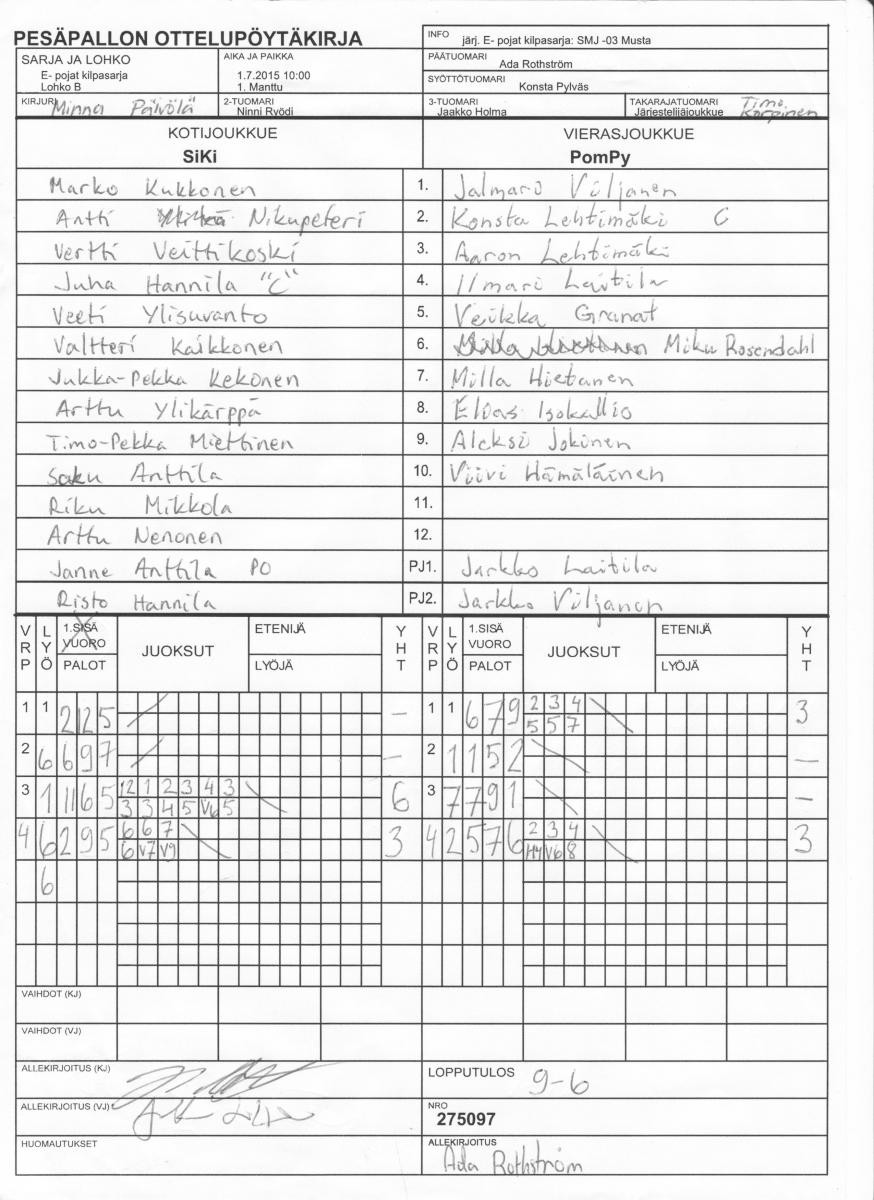 PESÄPALLON OTTELUPÖYTÄKIRJA
INFO järj. E- pojat kilpasarja: SMJ -03 Musta
SARJA JA LOHKO
E- pojat kilpasarja
Lohko B
AIKA JA PAIKKA
1.7.2015 10:00
1. Manttu
PÄÄTUOMARI
Ada Rothström
SYÖTTÖTUOMARI
Konsta Pylväs
KIRJURI Minna Päivölä
2-TUOMARI
Ninni Ryödi
3-TUOMARI
Jaakko Holma
TAKARAJATUOMARI
Järjestelijäjoukkue
Timo Karppinen
KOTIJOUKKUE VIERASJOUKKUE
SiKi PomPy
Marko Kukkonen 1. Jalmari Viljanen
Antti Nikupeteri 2. Konsta Lehtimäki C
Vertti Veittikoski 3. Aaron Lehtimäki
Juha Hannila "C" 4. Ilmari Laitila
Veeti Ylisuvanto 5. Veikka Granat
Valtteri Kaikkonen 6. Miku Rosendahl
Jukka-Pekka Kekonen 7. Milla Hietanen
Arttu Ylikärppä 8. Elias Isokallio
Timo-Pekka Miettinen 9. Aleksi Jokinen
Saku Anttila 10. Viivi Hämäläinen
Riku Mikkola 11.
Arttu Nenonen 12.
Janne Anttila PO PJ1. Jarkko Laitila
Risto Hannila PJ2. Jarkko Viljanen
VRP LYÖ 1.SISÄ VUORO PALOT JUOKSUT ETENIJÄ LYÖJÄ YHT VRP LYÖ 1.SISÄ VUORO PALOT JUOKSUT ETENIJÄ LYÖJÄ YHT
1 1 2 12 5 / – 1 1 6 7 9 2 3 4 \ 3
5 5 7
2 6 6 9 7 / – 2 1 1 5 2 \ –
3 1 11 6 5 12 1 2 3 4 3 \ 6 3 7 7 9 1 \ –
3 3 4 5 V6 5
4 6 2 9 5 6 6 7 \ 3 4 2 5 7 6 2 3 4 \ 3
6 V7 V9 H4 V6 8
6
VAIHDOT (KJ)
VAIHDOT (VJ)
ALLEKIRJOITUS (KJ)
LOPPUTULOS 9-6
ALLEKIRJOITUS (VJ)
NRO
275097
HUOMAUTUKSET
ALLEKIRJOITUS
Ada Rothström